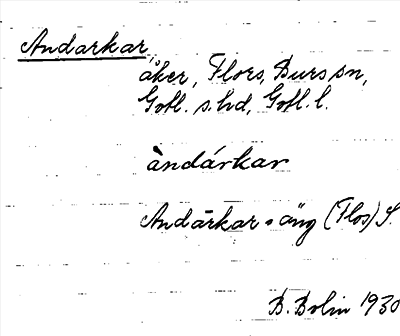 Andarkar,
åker, Flors, Burs sn,
Gotl. s. hd, Gotl. l.
àndárkar
Andārkar-äng (Flos) S.
B. Bolin 1930